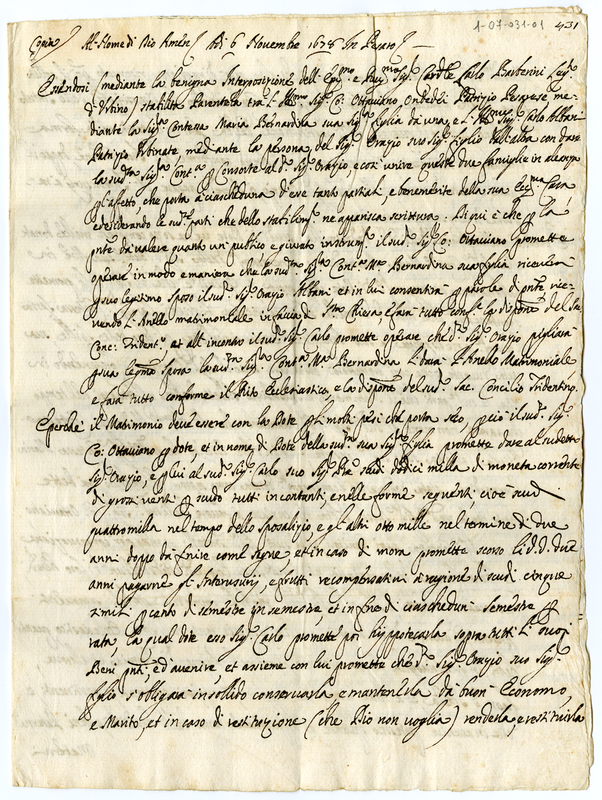 1-07-031-01 431
Copia Al Nome di Dio Amen Adi 6 Novembre 1678 In Pesaro
Essendosi (mediante la benigna Interposizione dell' Em.mo e Rev.mo Sig.r Card.le Carlo Barberini Leg.o
d'Urbino) stabilito Parentela tra l'Ill.mo Sig.r Co: Ottaviano Ondedei Patrizio Pesarese me-
diante la Sig.ra Contessa Maria Bernardina sua Sig.ra figlia da una, e l'Ill.mo Sig.r Carlo Albani
Patrizio Urbinate mediante la persona del Sig.r Orazio suo Sig.r figlio dall'altra con dare
la sud.ta Sig.ra Cont.a p Consorte al d.o Sig.r Orazio, e così unire queste due famiglie in
l'affetto, che porta à ciascheduna d'esse tanto partiali, e benemerite della sua Ecc.ma Casa
e desiderando le sud.e parti che dello stabilim.to ne apparisca scrittura. Di qui è che p la
p̃nte da valere quanto un publico e giurato instrum.to il sud.o Sig.r Co: Ottaviano promette
operare in modo e maniera che la sud.ta Sig.ra Cont.a M.a Bernardina sua figlia riceverà
p suo legitimo sposo il sud.o Sig.r Orazio Albani et in lui consentirà p parole di p̃nte rice-
vendo l'Anello matrimoniale in faccia di S.ta Chiesa e farà tutto conf.e la dispone del Sac.
Conc: Trident.o et all'incontro il sud.o Sig.r Carlo promette operare che d.o Sig.r Orazio pigliarà
p sua legma sposa la sud.ta Sig.ra Cont.a M.a Bernardina, le darà l'Anello Matrimoniale
e farà tutto conforme il Rito Ecclesiastico, e la dispone del sud.o Sac. Concilio Tridentino.
E perche il Matrimonio deve essere con la Dote p li molti pesi che porta seco, p ciò il sud.o Sig.r
Co: Ottaviano p dote, et in nome di Dote della sud.ta sua Sig.ra figlia promette dare al sudetto
Sig.r Orazio, e p lui al sud.o Sig.r Carlo suo Sig.r P̃re scudi dodici milla di moneta corrente
di grossi venti p scudo tutti in contanti, e nelle forme seguenti, cioè scudi
quattromilla nel tempo dello sposalizio e gl'altri otto mille nel termine di due
anni doppo da finire come segue et in caso di mora promette scorso li d.d. due
anni pagarne gl'Interusurij, e frutti recompensativi à ragione di scudi cinque
simili p cento di semestre in semestre et in fine di ciaschedun semestre p
rata, la qual dote esso Sig.r Carlo promette poi hippotecarla sopra tutti l' suoi
Beni p̃nti, ed avenire, et assieme con lui promette che d.o Sig.r Orazio suo Sig.r
figlio s'obligarà in solido conservarla e mantenerla da buon Economo,
e Marito, et in caso di restitutione (che Dio non voglia) renderla, e restituirla